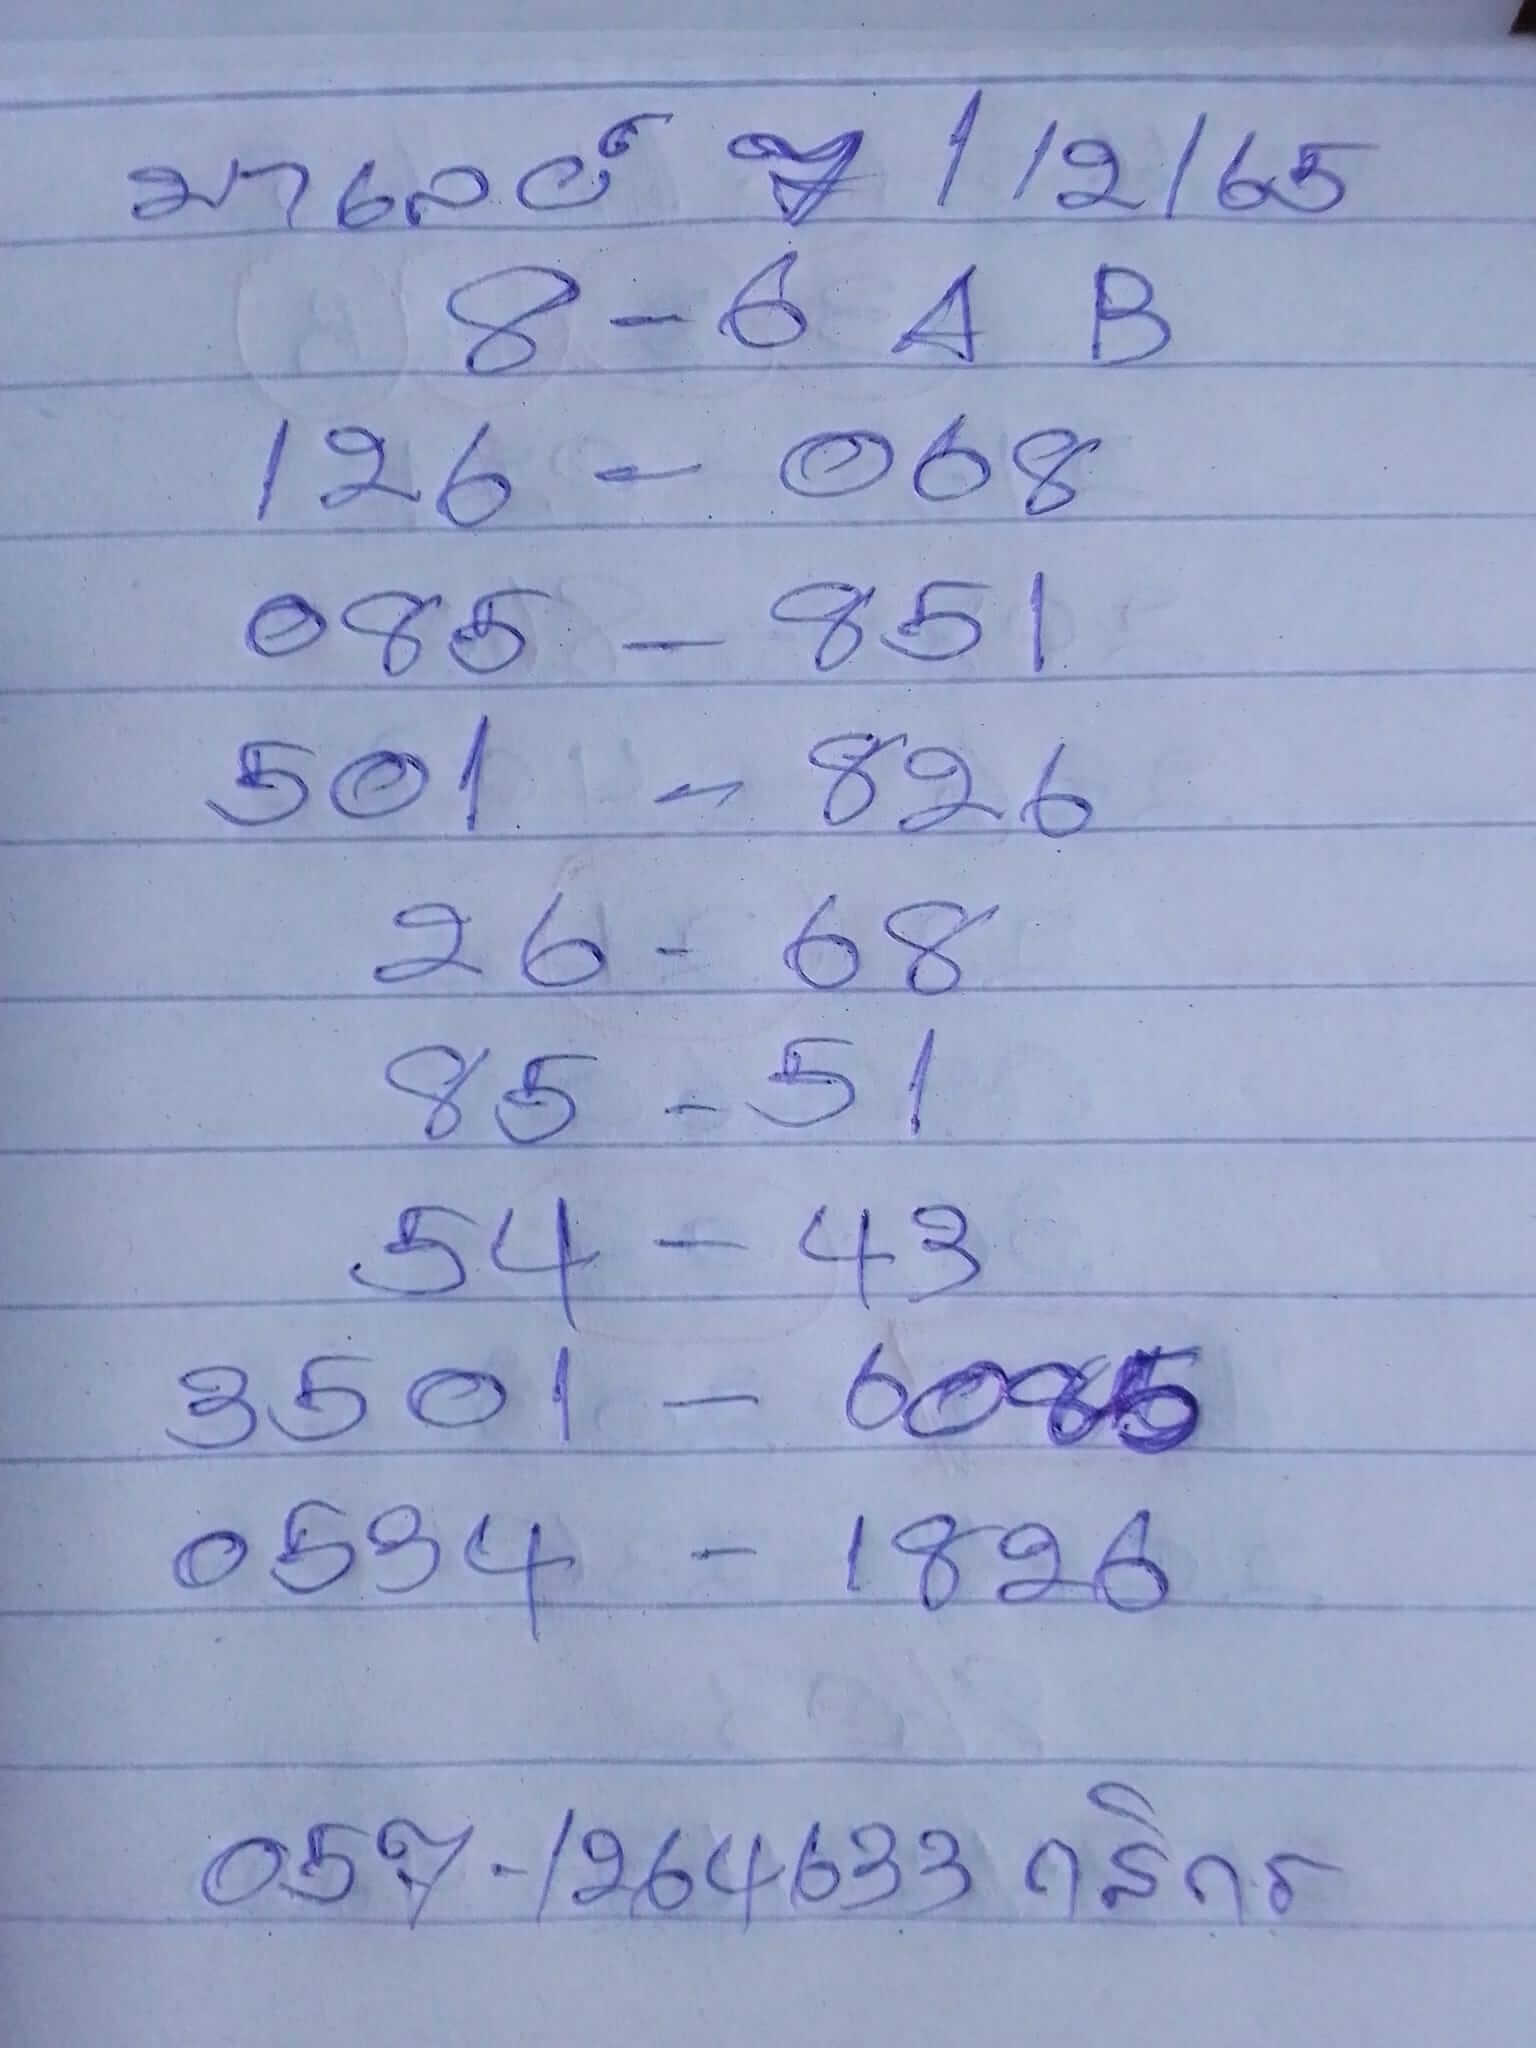 มาเลย์ 1/2/65
8-6 A B
126 - 068
085 - 851
501 - 826
26 - 68
85 - 51
54 - 43
3501 - 6085
0534 - 1826
057-1264633 กสิกร